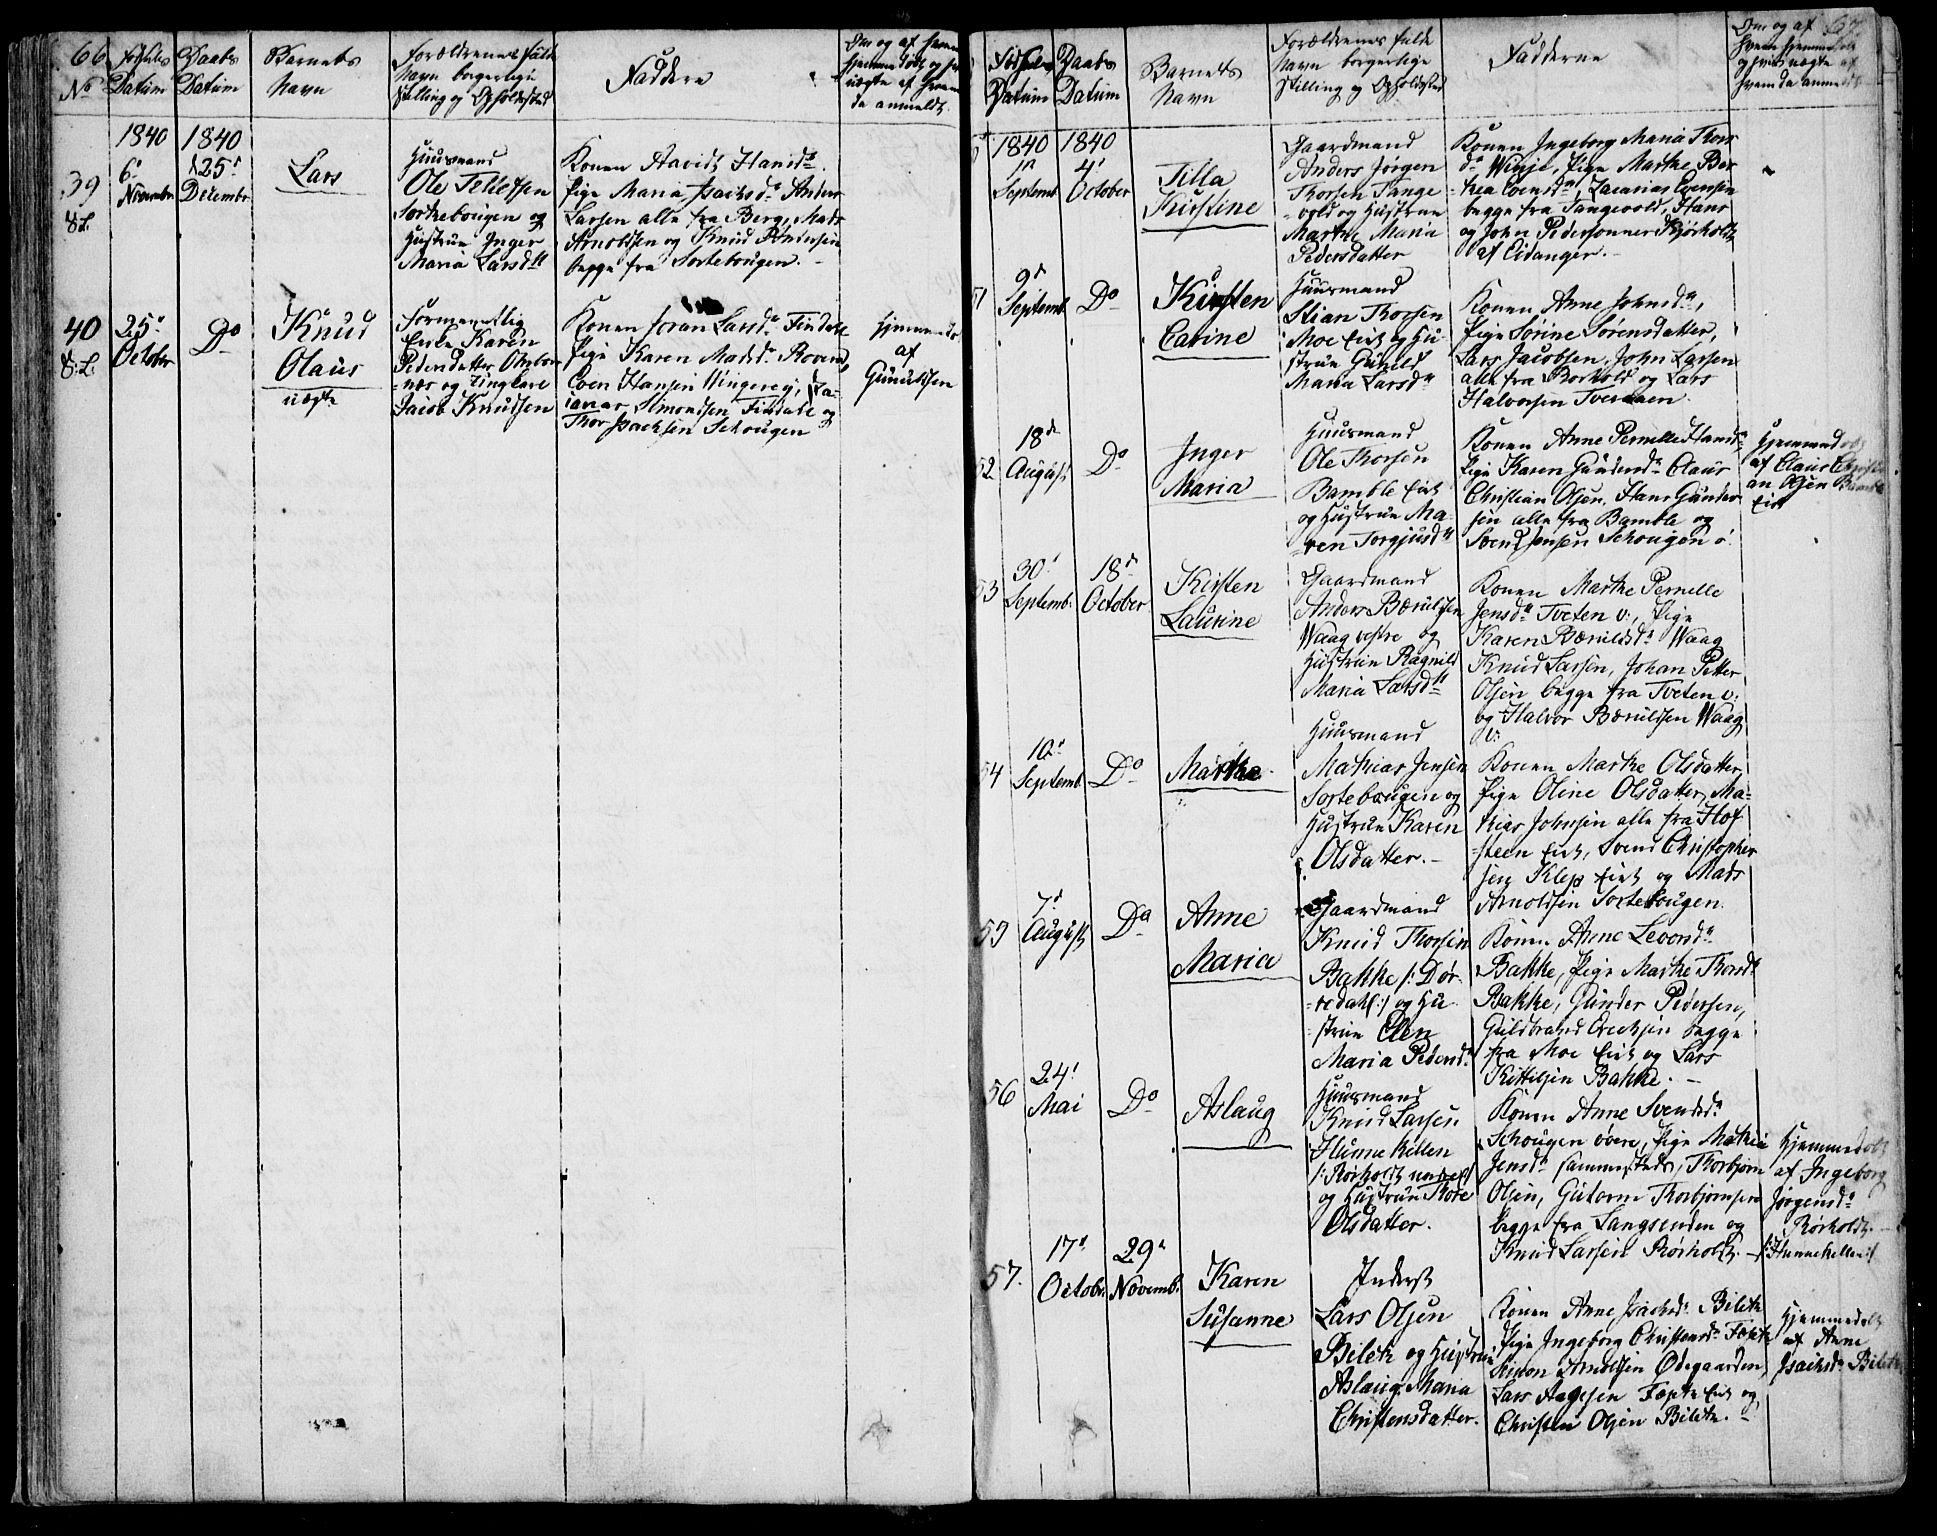 66
No
Fødsels
Datum
Daabs
Datum
Barnets
Navn
Forældrenes fulde
Navn borgerlige
Stilling og Opholdssted
Faddere
Om og af hvem
hjemmedøbt og hvis
uægte af hvem
da anmeldt
39
8.L.
1840
6'
Novembr
1840
25'
Decembr
Lars
Huusmand
Ole Tellefsen
Sortebougen og
Hustrue Inger
Maria Larsdtr
Konen Hansdr
Pige Maria Isachsdr Anders
Larsen alle fra Berg, Mads
Arnoldsen og Knud
begge fra Sortebougen.
40
8.L.
25'
October
Do
Knud
Olaus
uægte
Formentlig
Enke Karen
Pedersdatter
næs og Ungkarl
Jacob Knudsen
Konen Joran Larsdr Findale
Pige Karen Madsdr
Even Hansen Vingerej, Za-
iarias Simondsen Findale og
Thor Isachsen Schougen
Hjemmedøbt
af
Gunuldsen
67
Fødsels
Datum
Daabs
Datum
Barnets
Navn
Forældrenes fulde
Navn borgerlige
Stilling og Opholdssted
Fadderne
Om og af
hvem hjemmedøbt
og hvis uægte af
hvem da anmeldt
1840
1'
Septemb.
1840
4'
October
Tilla
Kirstine
Gaardmand
Anders Jørgen
Thorsen Tange-
vold og Hustrue
Marthe Maria
Pedersdatter
Konen Ingeborg Maria Thors
dr Winje, Pige Marthe Ber-
thea Evensdr, Zacarias Evensen
begge fra Tangevold, Hans
og John Pedersønner Kjørholt
af Eidanger.
51
9'
Septemb.
Do
Kirsten
Carine
Huusmand
Stian Thorsen
Moe Eiet og Hu-
strue Gunild
Maria Larsdr
Konen Anne Johnsdr,
Pige Sørine Sørensdatter,
Lars Jacobsen, John Larsen
alle fra Rørhold og Lars
Halvorsen Tverdalen.
52
18'
August
Do
Inger
Maria
Huusmand
Ole Thorsen
Bamble Eiet
og Hustrue Ma-
ren Torgjusdr
Konen Anne Pernelle Hansdr
Pige Karen Gundersdr Claus
Christian Olsen, Hans Gunder-
sen alle fra Bamble og
Svend Jensen Schougen ø.
Hjemmedøbt
af Claus Christi-
an Olsen Bamble
Eiet
53
30'
Septemb.
18'
October
Kirsten
Laurine
Gaardmand
Anders Bærulfsen
Waag vestre og
Hustrue Ragnild
Maria Larsdr
Konen Marthe Pernelle
Jensdr Tveten v:, Pige
Karen Bærulfsdr Waag
Knud Larsen, Johan Petter
Olsen begge fra Tveten v:
og Halvor Bærulfsen Waag
v:
54
10'
Septemb.
Do
Marthe
Huusmand
Mathias Jensen
Sortebougen og
Hustrue Karen
Olsdatter.
Konen Marthe Olsdatter
Pige Oline Olsdatter, Ma-
thias Johnsen alle fra Hof-
steen Eiet, Svend Christopher-
sen Klep Eiet og Mads
Arnoldsen Sortebougen.
55
7'
August
Do
Anne
Maria
Gaardmand
Knud Thorsen
Bakke /: Dør-
redahl :/ og Hu-
strue Elen
Maria Pedersdr
Konen Anne Levorsdr
Bakke, Pige Marthe Thorsdr
Bakke, Gunder Pedersen,
Guldbrand Erichsen begge
fra Moe Eiet og Lars
Kittilsen Bakke.
56
24'
Mai
Do
Aslaug
Huusmand
Knud Larsen
Hunnekillen
/: Rørholdt
og Hustrue Thore
Olsdatter.
Konen Anne Svendsdr
Schougen øvre, Pige Mathia
Jensdr sammesteds, Thorbjørn
Olsen, Gutorm Thorbjørnsen
begge fra Langsunden og
Knud Larsen Rørholdt.
Hjemmedøbt
af Ingeborg
Jørgensdr
Rørholdt.
/: Hunnekillen :/
57.
17'
Octobr.
29'
Novemb.
Karen
Susanne
Inderst
Lars Olsen
Bilet og Hustrue
Aslaug Maria
Christensdatter.
Konen Anne Isachsdr Bilet
Pige Ingeborg Christensdr
Simon Arnoldsen Ødegaarden,
Lars Aagesen Eiet og
Christen Olsen Bilet.
Hjemmedøbt
af Anne
Isachsdr Bilet